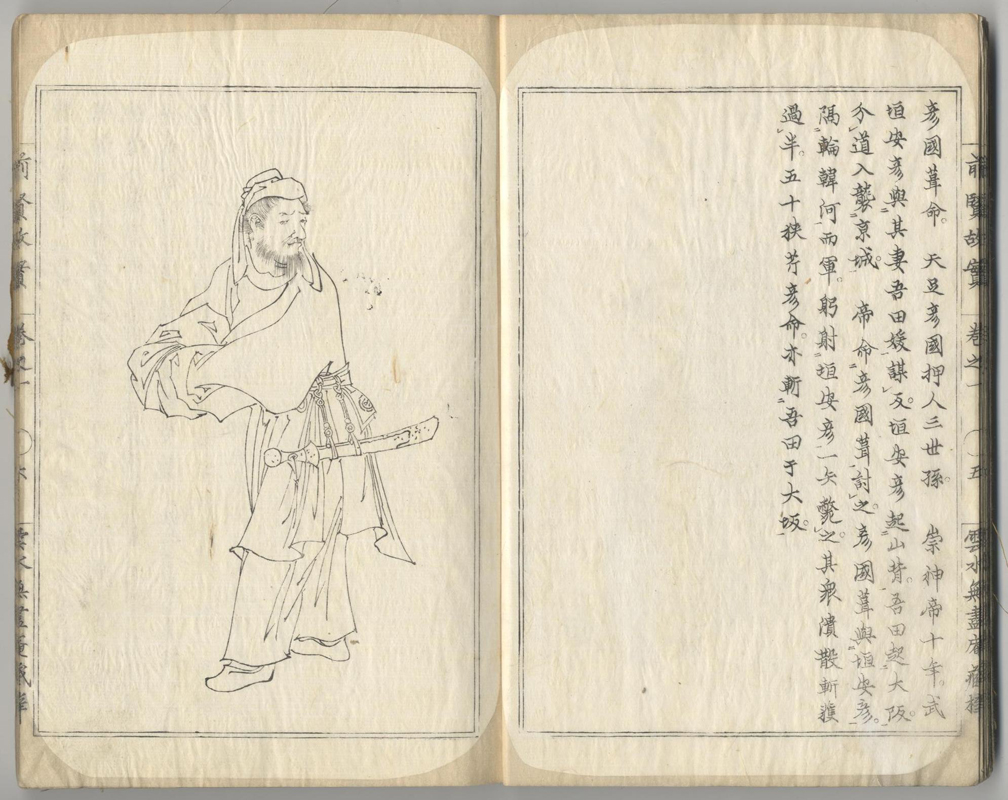 前賢故實 卷之一 〇五 雲水無盡庵藏梓
彦國葺命。 天足彦國押人三世孫。 崇神帝十年。武
垣安彦與其妻吾田媛謀反。垣安彦起山背。吾田起大阪。
分道入襲京城。 帝命彦國葺討之。彦國葺與垣安彦。
隔輪韓河而軍。躬射垣安彦一矢斃之其衆潰散斬獲
過半。五十狹芹彦命。亦斬吾田于大坂。
前賢故實 卷之一 〇六 雲水無盡庵藏梓